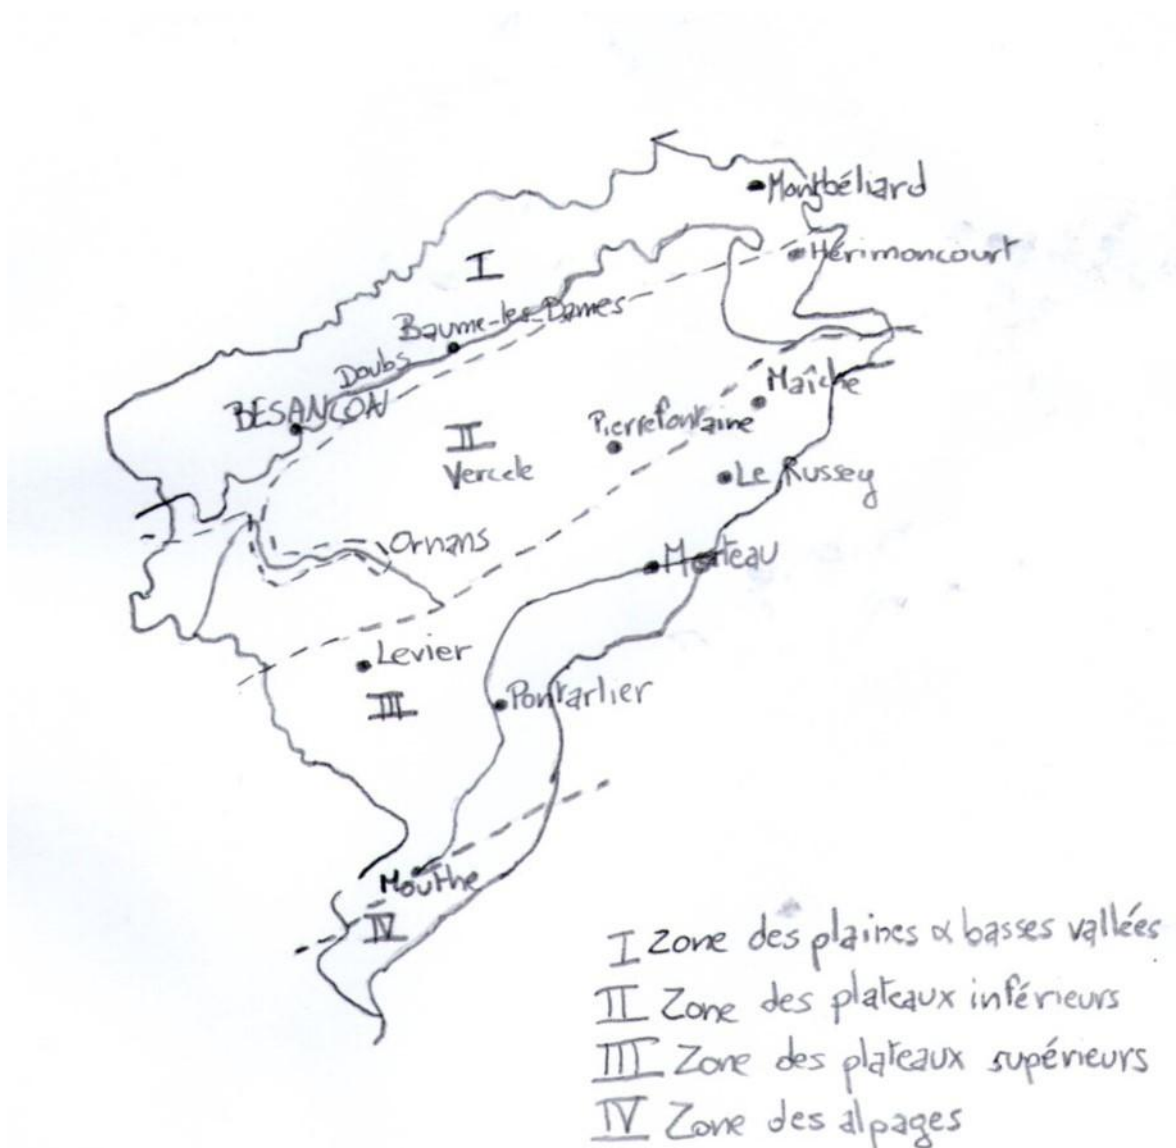 Montbéliard
Hérimoncourt
I
Baume-les-Dames
Doubs
BESANÇON
Maîche
Pierrefontaine
II
Vercele
Le Russey
Ornans
Morteau
Levier
III
Pontarlier
Mouthe
IV
I Zone des plaines & basses vallées
II Zone des plateaux inférieurs
III Zone des plateaux supérieurs
IV Zone des alpages